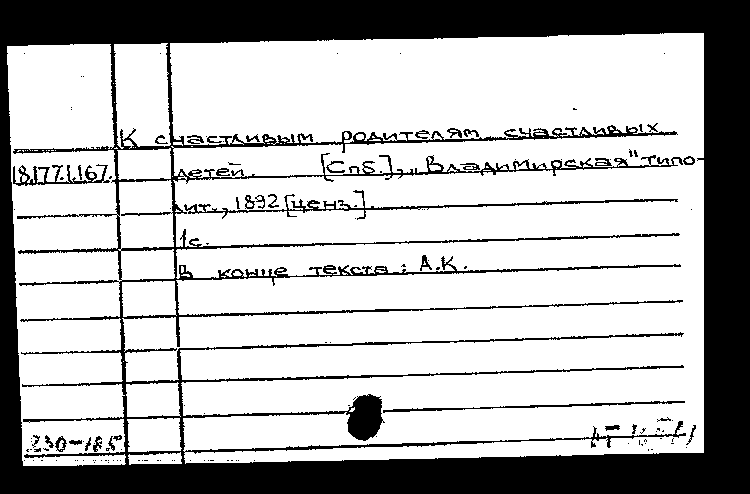 К счастливым родителям счастливых
18.177.1.167. детей. [Спб.], „Владимирская" типо-
лит., 1892 [ценз.].
1с.
В конце текста: А.К.
230-185